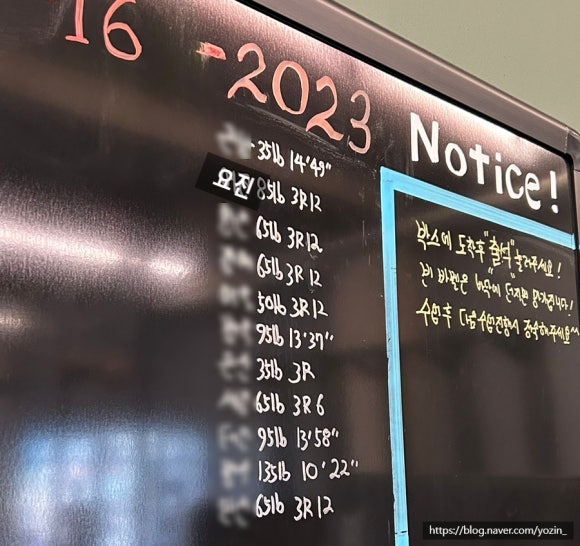 16 -2023
35lb 14'49"
요진 85lb 3R12
65lb 3R12
65lb 3R 12
50lb 3R12
95lb 13'37"
35lb 3R
65lb 3R 6
95lb 13'58"
135lb 10'22"
65lb 3R12
Notice!
박스에 도착후 "출석" 눌러주세요!
빈 바벨은
수업후
https://blog.naver.com/yozin_